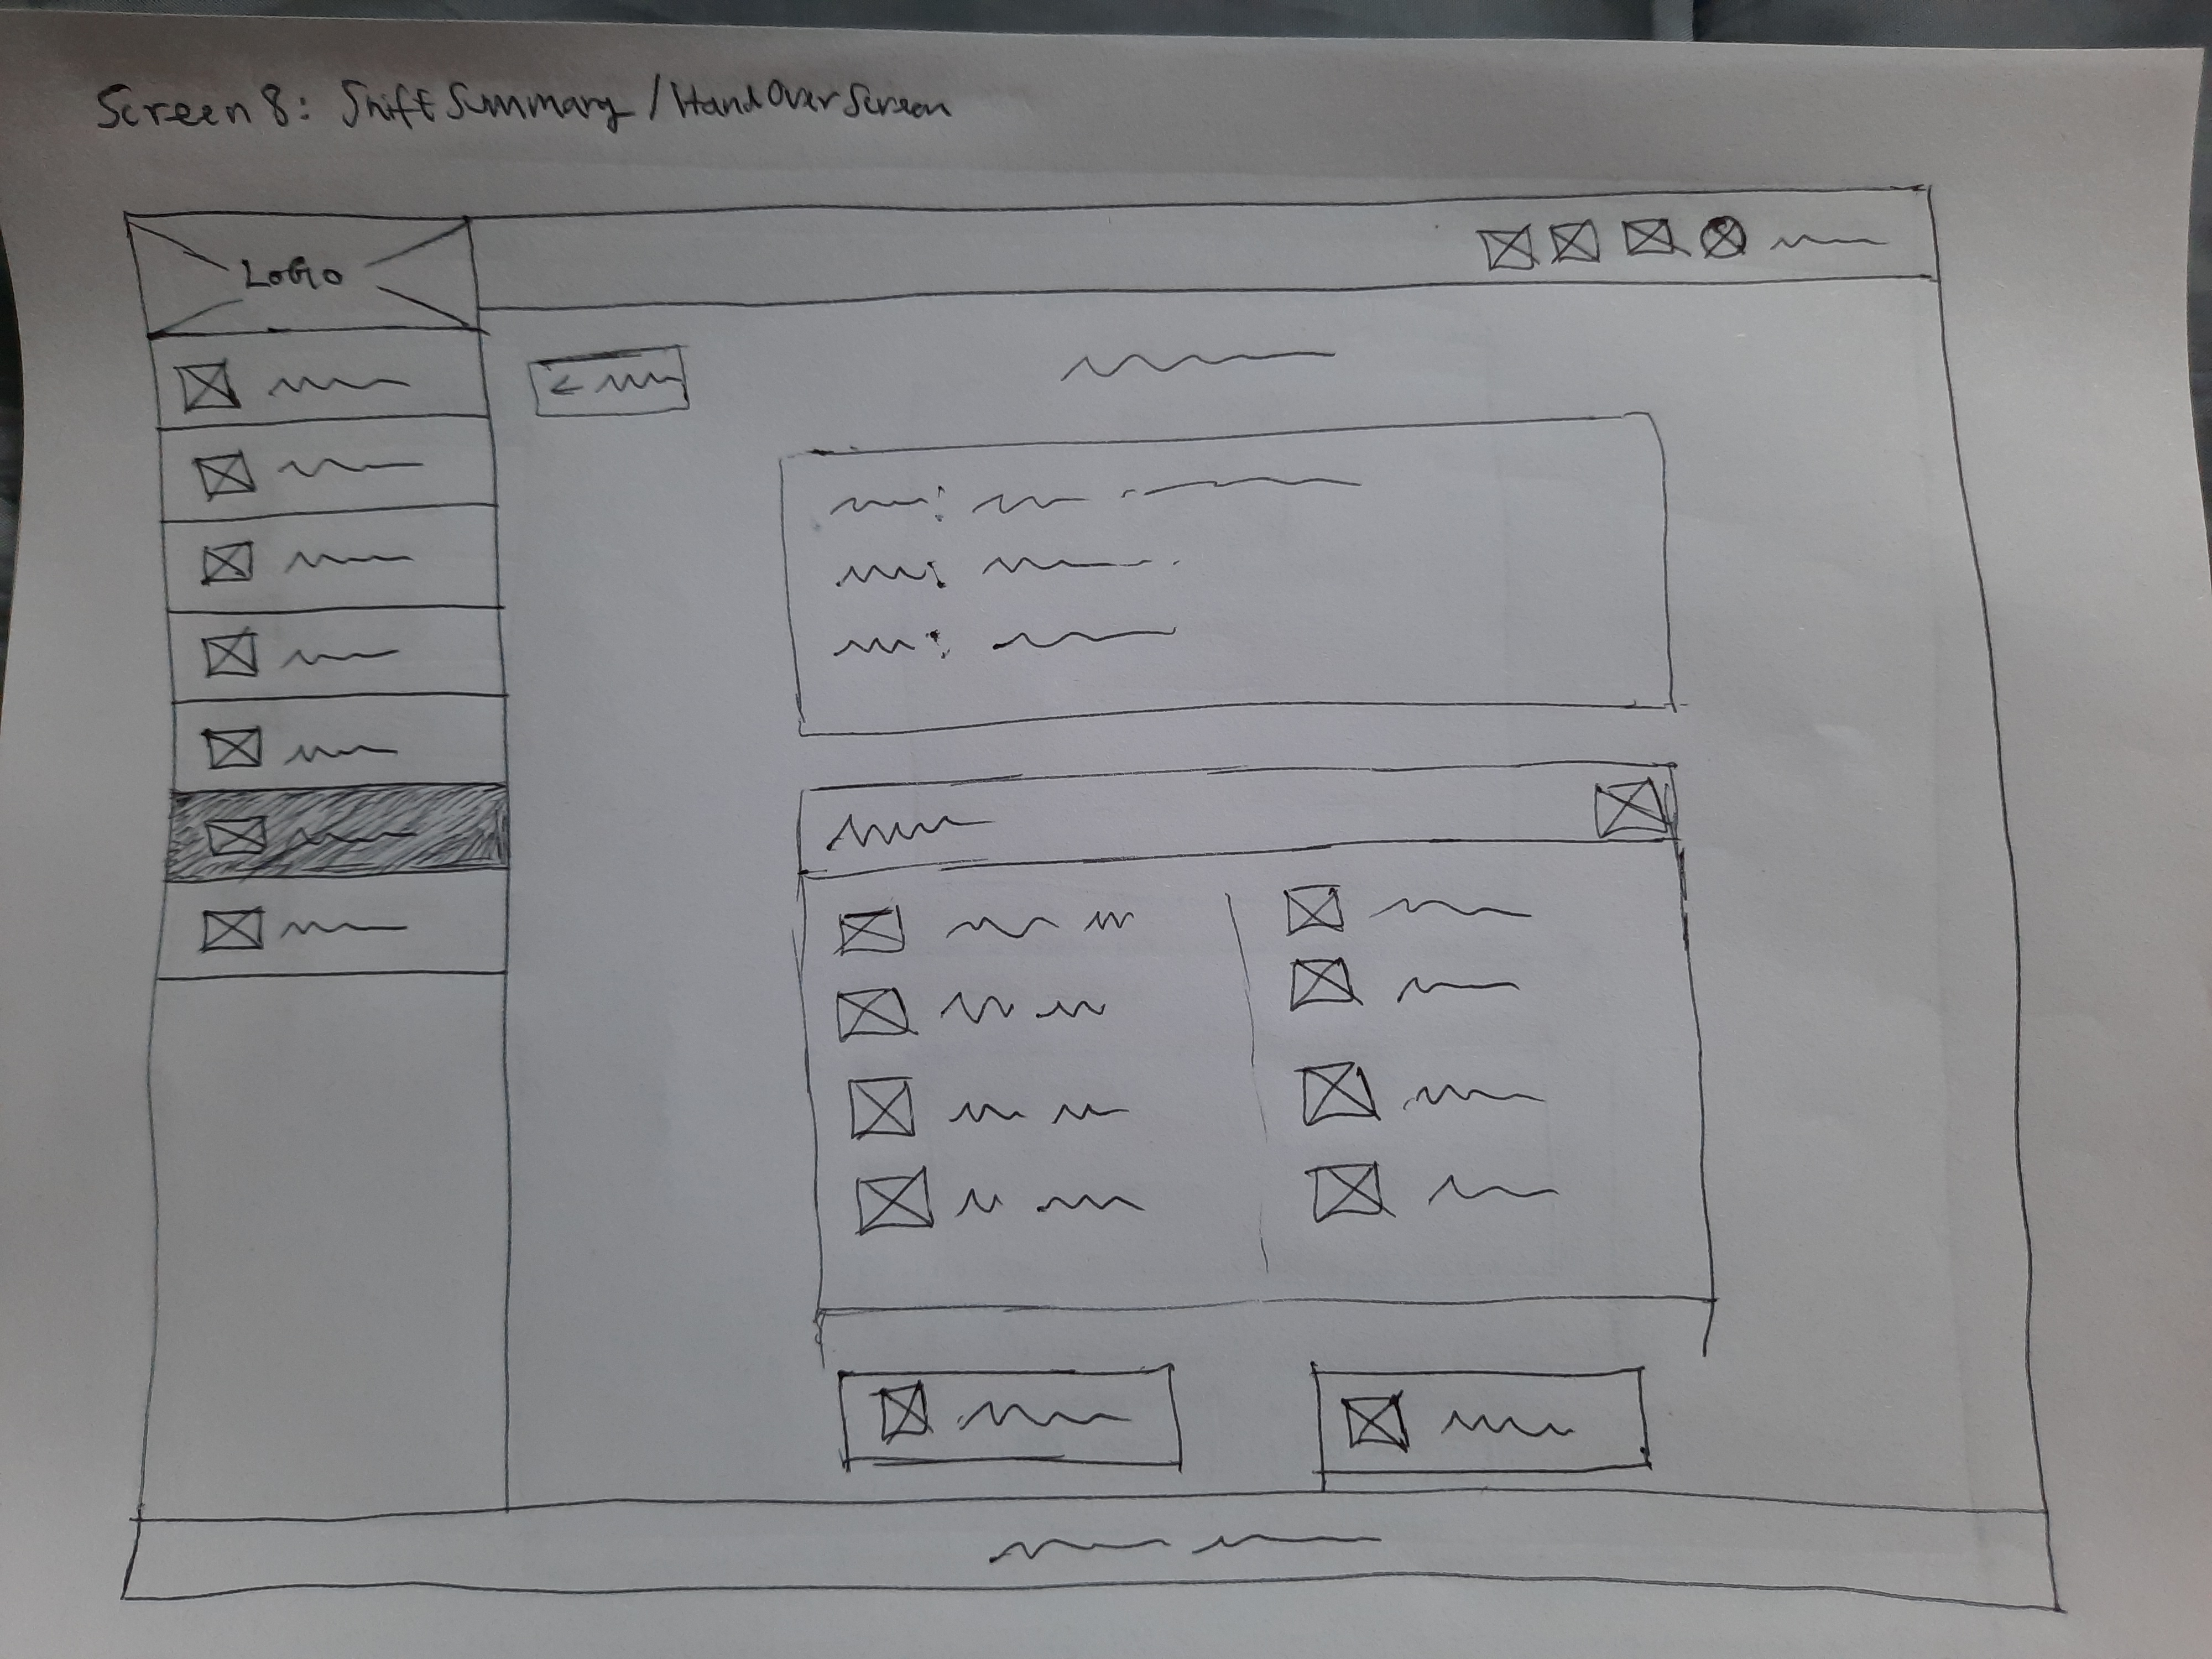 Screen 8: Shift Summary / Hand Over Screen
LOGO